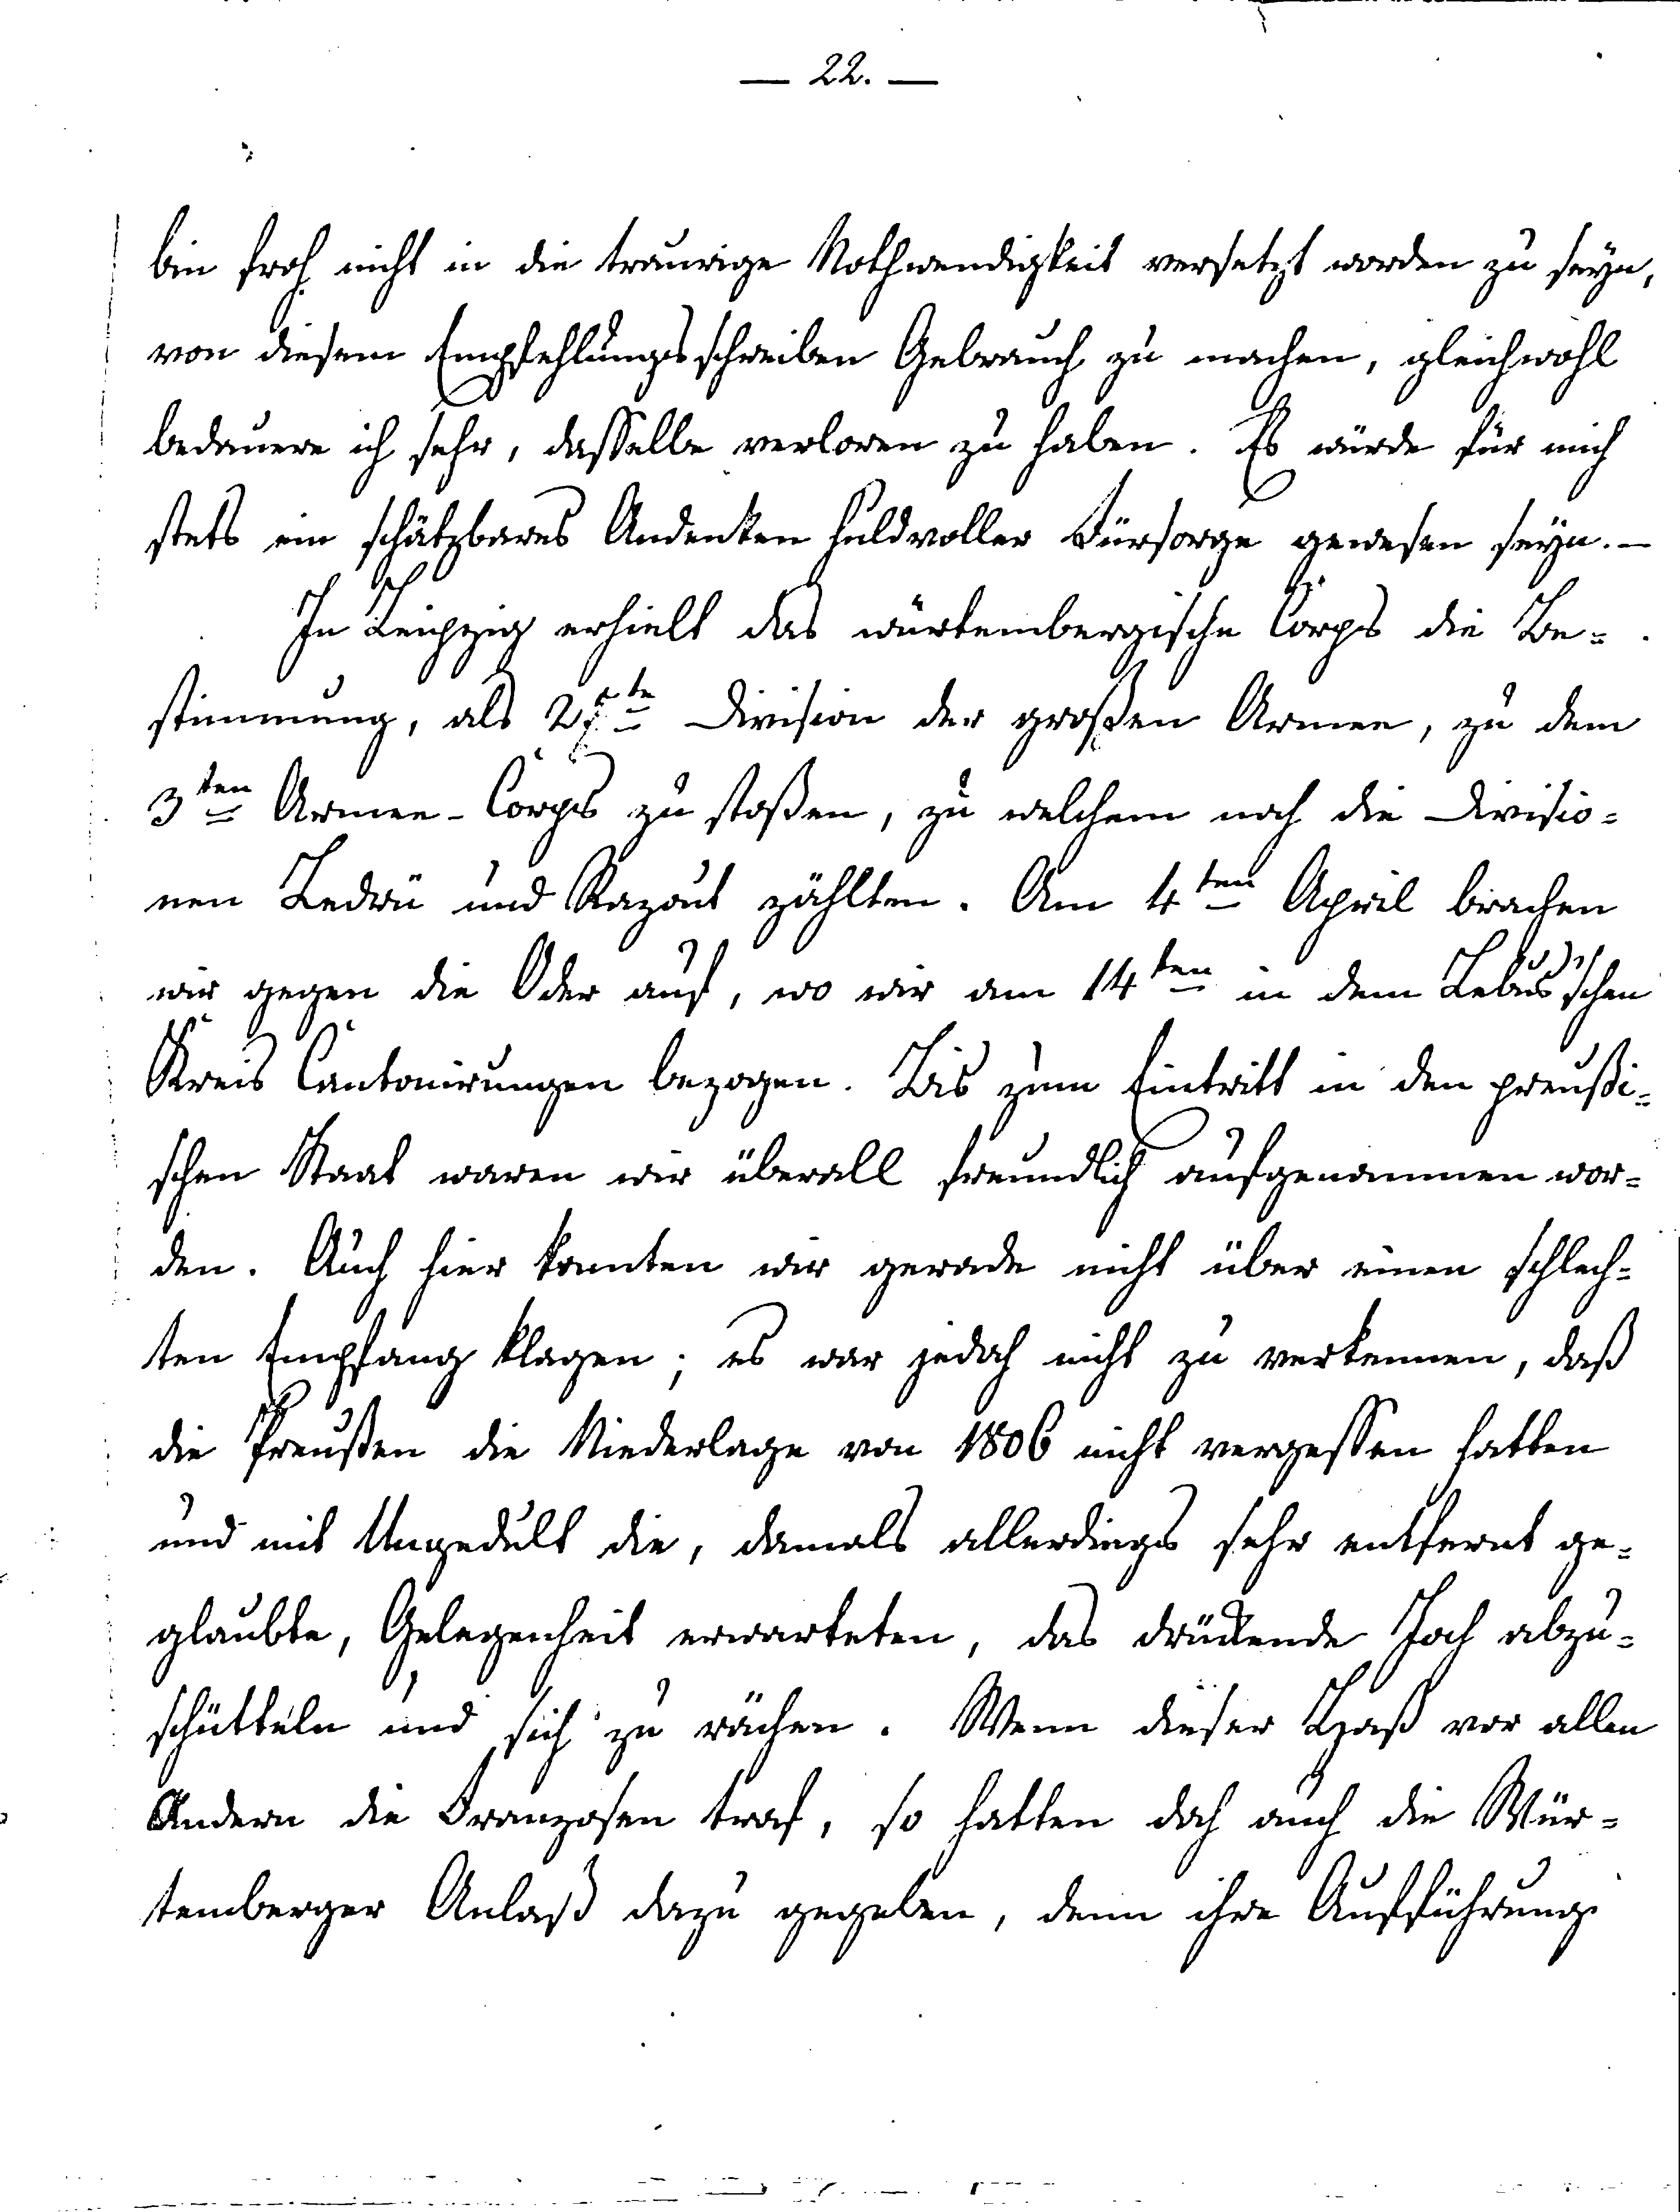 — 22. —
bin froh nicht in die traurige Nothwendigkeit versetzt worden zu seyn,
von diesem Empfehlungsschreiben Gebrauch zu machen, gleichwohl
bedauere ich sehr, dasselbe verloren zu haben. Es würde für mich
stets ein schätzbares Andenken huldvoller Fürsorge gewesen seyn. —
In Leipzig erhielt das würtembergische Corps die Be=
stimmung, als 25te Division der großen Armee, zu dem
3ten Armee-Corps zu stoßen, zu welchem noch die Divisio=
nen Ledrü und Razout zählten. Am 4ten April brachen
wir gegen die Oder auf, wo wir am 14ten in dem Lebus'schen
Kreis Cantonirungen bezogen. Bis zum Eintritt in den preußi=
schen Staat waren wir überall freundlich aufgenommen wor=
den. Auch hier konnten wir gerade nicht über einen schlech=
ten Empfang klagen; es war jedoch nicht zu verkennen, daß
die Preußen die Niederlage von 1806 nicht vergessen hatten
und mit Ungedult die, damals allerdings sehr entfernt ge=
glaubte, Gelegenheit erwarteten, das drückende Joch abzu=
schütteln und sich zu rächen. Wenn dieser Haß vor allen
Andern die Franzosen traf, so hatten doch auch die Wür=
temberger Anlaß dazu gegeben, denn ihre Aufführung